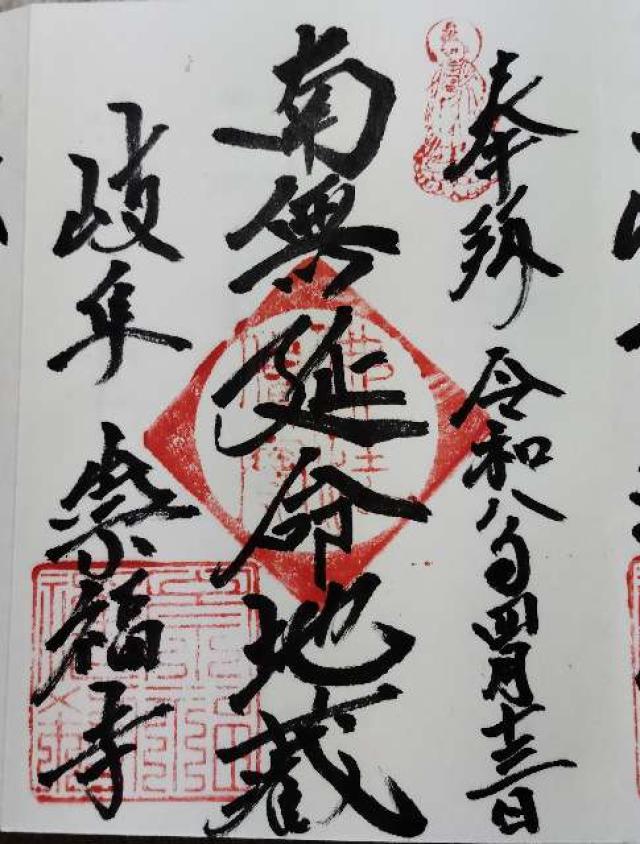 奉拝 令和八年四月十三日
南無延命地蔵
岐阜 崇福寺